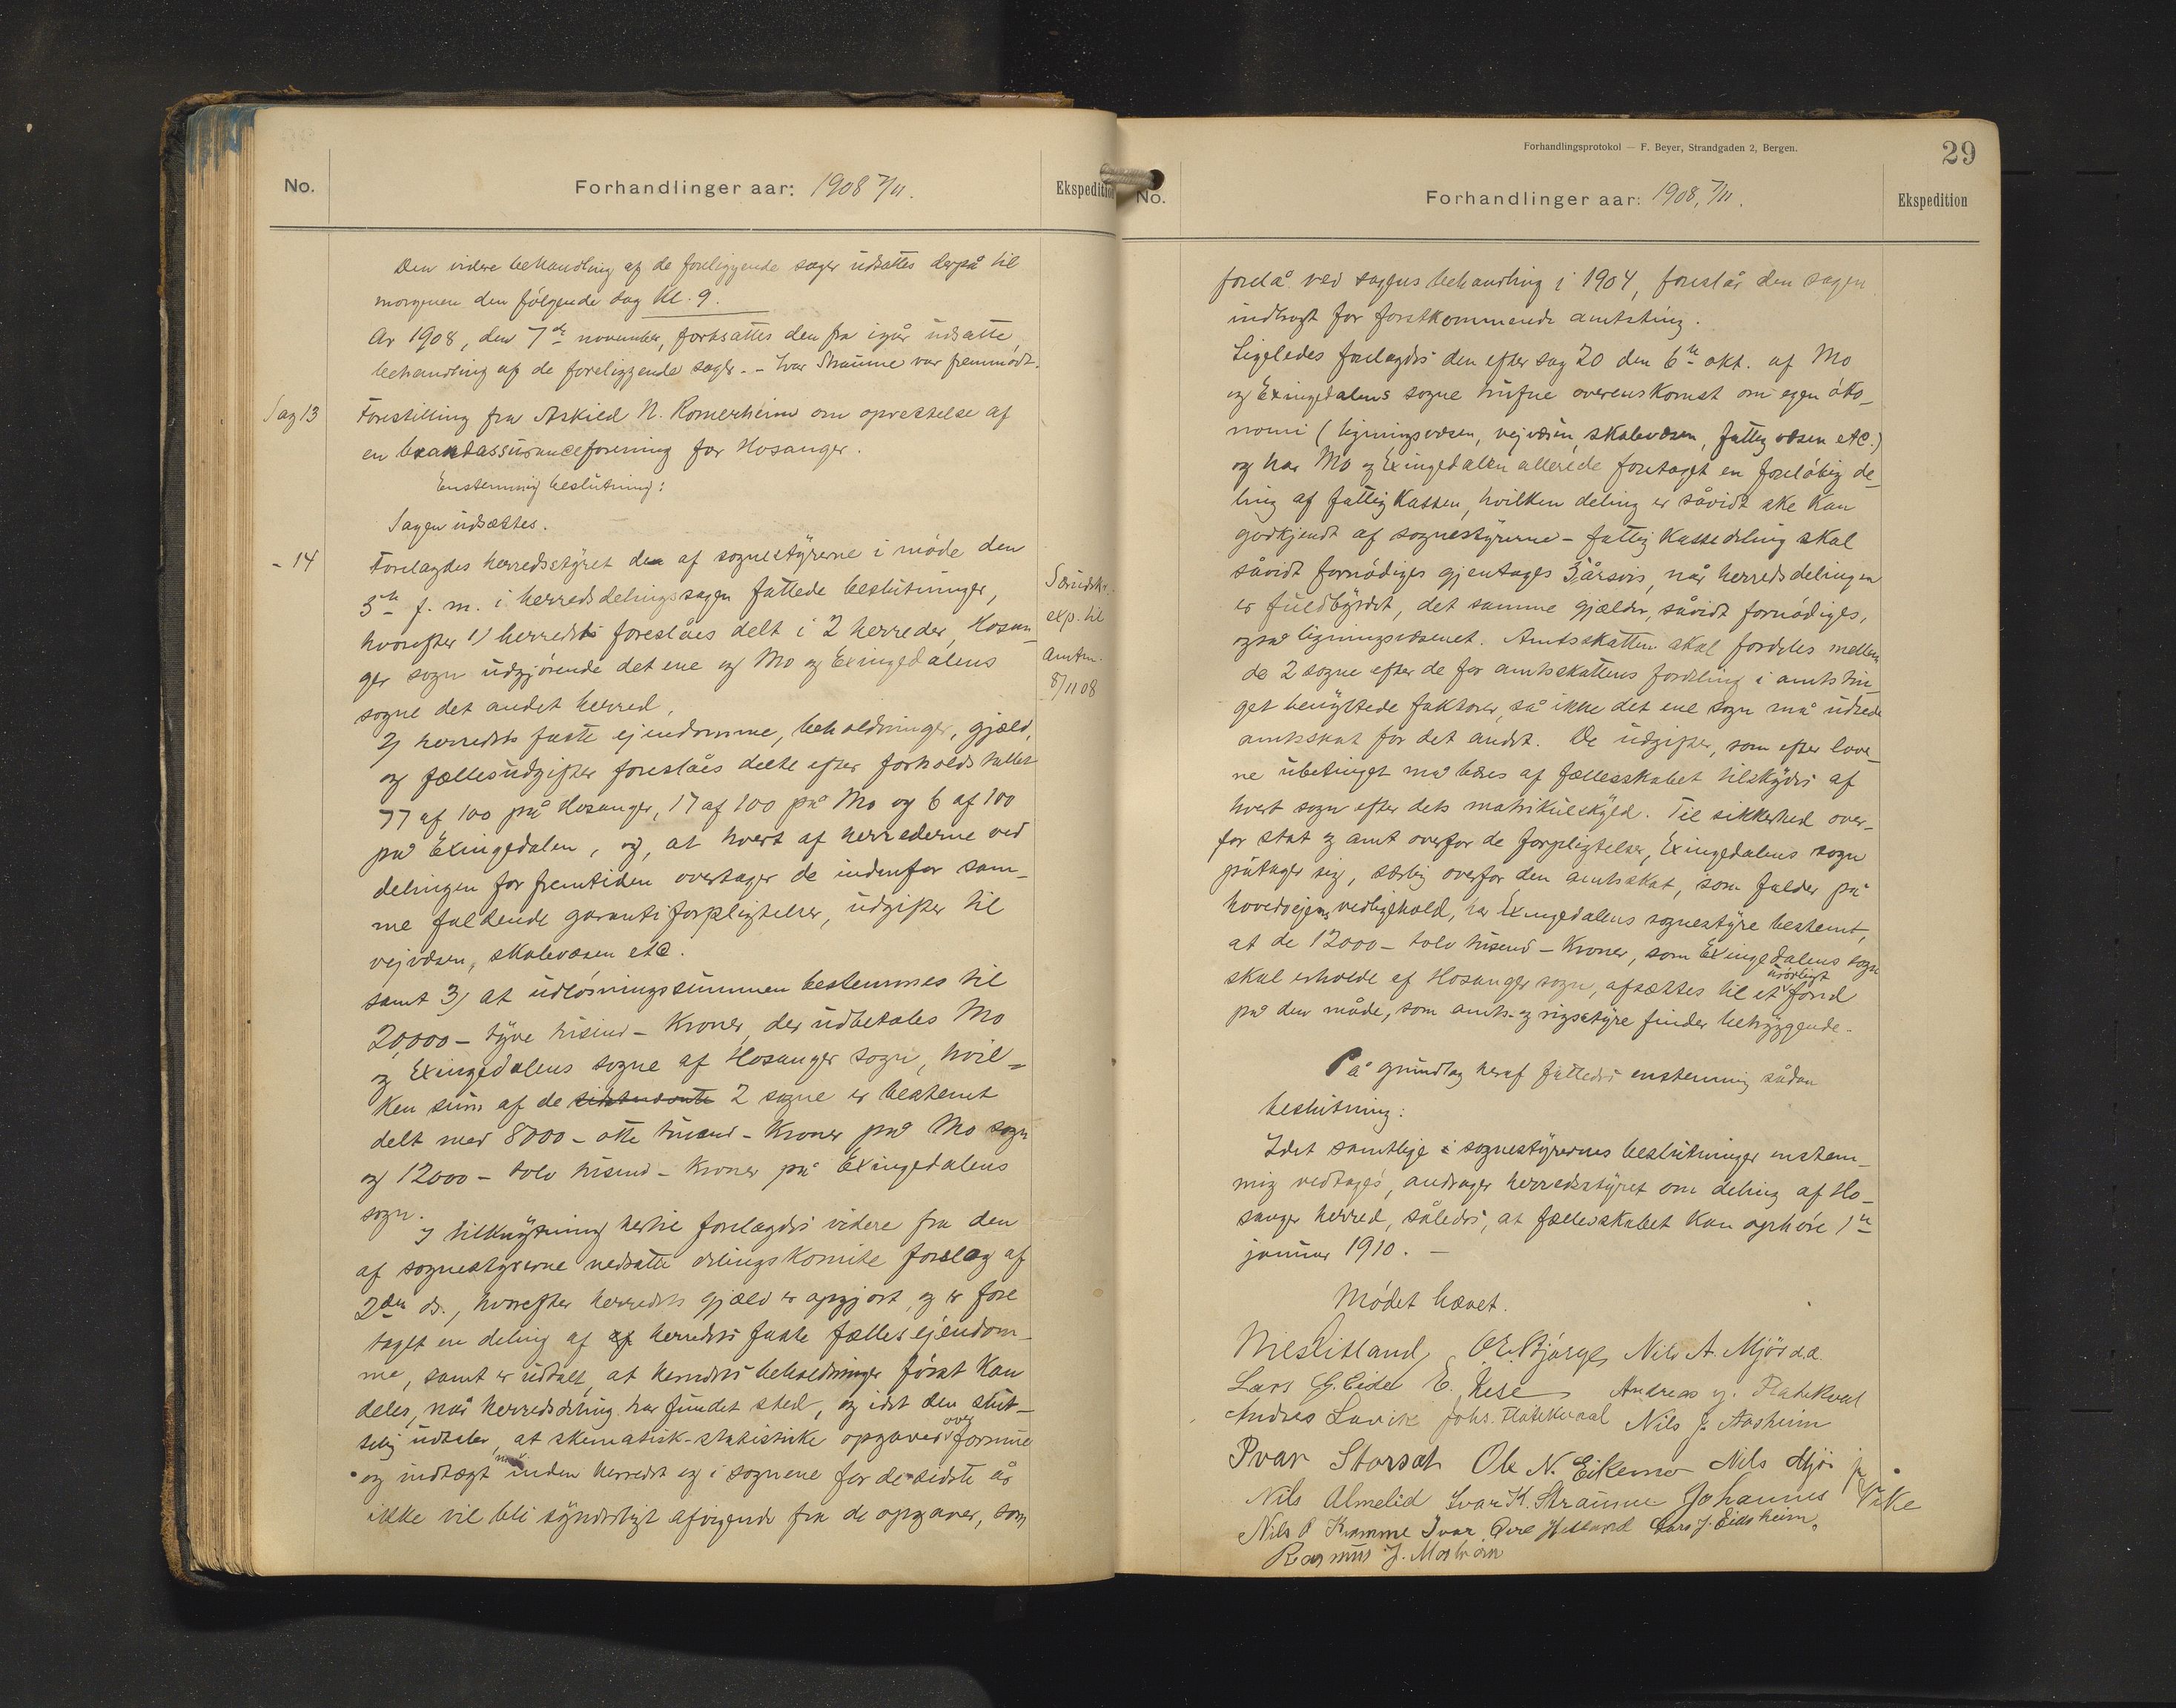 No.
Forhandlinger aar: 1908 7/11.
Ekspedition
Den videre behandling af de foreliggende sager udsattes derpå til
morgenen den følgende dag kl. 9.
Ar 1908, den 7de november, fortsattes den fra igår udsatte
behandling af de foreliggende sager. - Ivar Straume var fremmødt.
Sag 13
Forestilling fra Askild N. Romerheim om oprettelse af
en brandassuranceforening for Hosanger.
Enstemmig beslutning:
Sagen udsættes.
- 14
Forelagdes herredsstyret de af sognestyrerne i møde den
5te f. m. i herredsdelingssagen fattede beslutninger,
hvorefter 1) herredets foreslåes delt i 2 herreder, Hosan-
ger sogn udgjørende det ene og Mo og Exingedalens
sogne det andet herred,
2) herredets faste ejendomme, beholdninger, gjæld,
og fællesudgifter foreslåes delte efter forholdstallet
77 af 100 på Hosanger, 17 af 100 på Mo og 6 af 100
på Exingedalen, og, at hvert af herrederne ved
delingen for fremtiden overtager de indenfor sam-
me faldende garantiforpligtelser, udgifter til
vejvæsen, skolevæsen etc.
samt 3) at udløsningssummen bestemmes til
20,000 - tyve tusind - kroner, der udbetales Mo
og Exingedalens sogne af Hosanger sogn, hvil-
ken sum af de sidstnævnte 2 sogne er bestemt
delt med 8000 - otte tusend - kroner på Mo sogn
og 12000 - tolv tusind - kroner på Exingedalens
sogn.
I tilknytning hertil forelagdes videre fra den
af sognestyrerne nedsatte delingskomite forslag af
2den ds., hvorefter herredets gjæld er opgjort, og er fore
taget en deling af af herredets faste fællesejendom-
me, samt er udtalt, at herredets beholdninger først kan
deles, når herredsdeling har fundet sted, og idet den slut-
telig udtaler, at skematisk-statistiske opgaver over formue
og indtægt inden herredet og i sognene for de sidste år
ikke vil bli synderligt afvigende fra de opgaver, som
Særudskr.
exp. til
amtm.
8/11 08
Forhandlingsprotokol — F. Beyer, Strandgaden 2, Bergen.
29
No.
Forhandlinger aar: 1908, 7/11.
Ekspedition
forelå ved sagens behandling i 1904, foreslår den sagen
indbragt for førstkommende amtsting.
Ligeledes forelagdes den efter sag 20 den 6te okt. af Mo
og Exingedalens sogne trufne overenskomst om egen øko-
nomi (ligningsvæsen, vejvæsen, skolevæsen, fattigvæsen etc.)
og har Mo og Exingedalen allerede foretaget en foreløbig de-
ling af fattigkassen, hvilken deling er såvidt ske kan
godkjendt af sognestyrerne - fattigkassedeling skal
såvidt fornødiges gjentages 5 årsvis, når herredsdelingen
er fuldbyrdet, det samme gjælder, såvidt fornødiges,
også ligningsvæsenet. Amtsskatten skal fordeles mellem
de 2 sogne efter de for amtsskattens fordeling i amtstin-
get benyttede faktorer, så ikke det ene sogn må udrede
amtsskat for det andet. De udgifter, som efter love-
ne ubetinget må bæres af fællesskabet tilskydes af
hvert sogn efter dets matrikulskyld. Til sikkerhed over-
for stat og amt overfor de forpligtelser, Exingedalens sogn
påtager sig, særlig overfor den amtsskat, som falder på
hovedvejens vedligehold, har Exingedalens sognestyre bestemt,
at de 12000 - tolv tusend - kroner, som Exingedalens sogn
skal erholde af Hosanger sogn, afsættes til et urørligt fond
på den måde, som amts- og rigsstyre finder betryggende.
På grundlag heraf fattedes enstemmig sådan
beslutning:
Idet samtlige i sognestyrernes beslutninger enstem-
mig vedtages, andrager herredsstyret om deling af Ho-
sanger herred, således, at fællesskabet kan ophøre 1te
januar 1910. -
Mødet hævet.
Nils Litland, O. E. Bjørge, Nils A. Mjøs d.æ.
Lars G. Eide E. Dese Andreas J. Flatekval
Andres Lavik Johs. Flatekvaal Nils J. Aasheim
Ivar Storset Ole N. Eikemo Nils Mjøs jr
Nils Almelid Ivar K. Straume Johannes Vike
Nils O Kvamme Ivar Helland Lars J. Eidsheim,
Rasmus J.